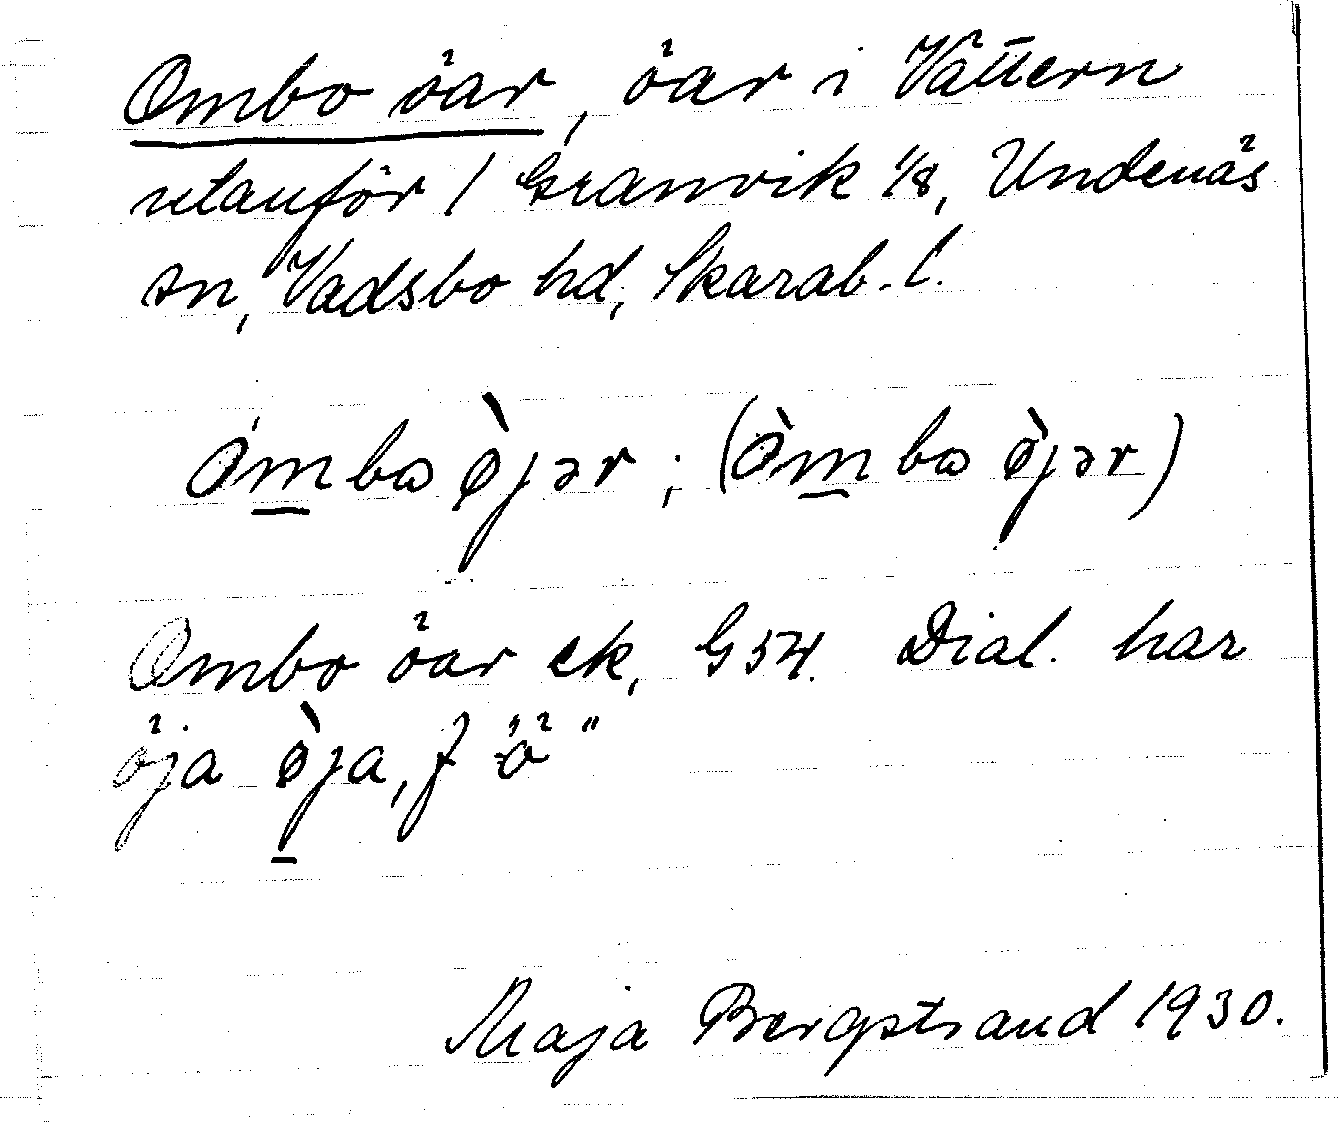 Ombo öar, öar i Vättern
utanför / Granvik 1/8, Undenäs
sn, Vadsbo hd, Skarab. l.
òmbo ø̀jər ; (òmbo ø̀jər)
Ombo öar ek, G 54. Dial. har
öja ø̀ja, f "ö"
Maja Bergstrand 1930.